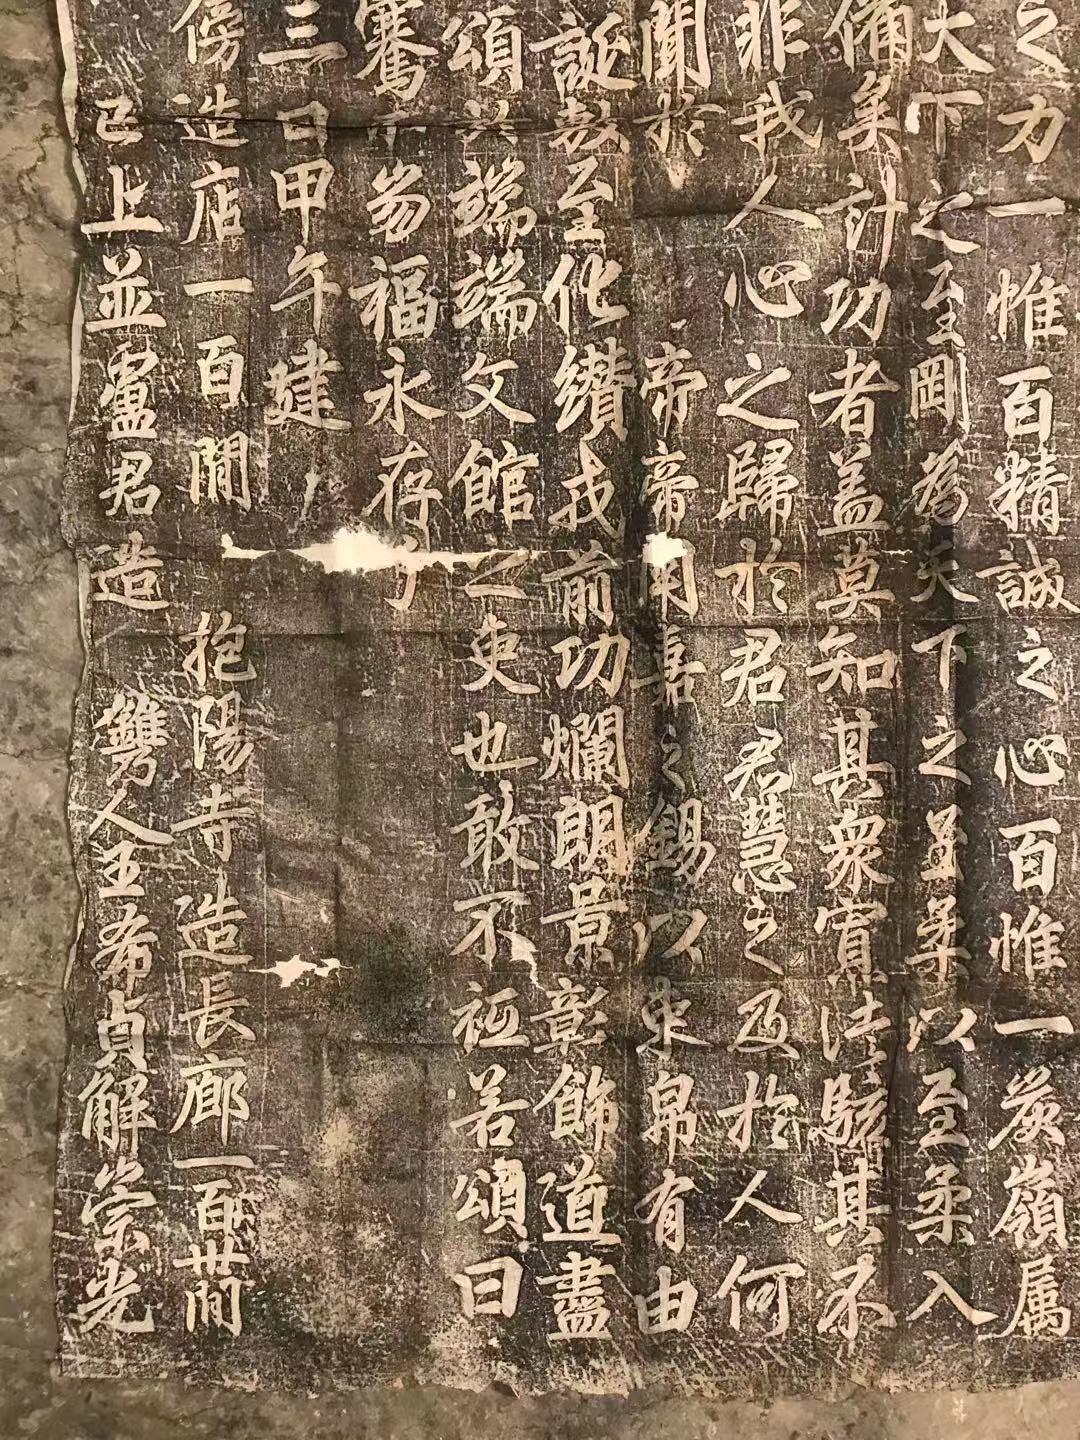 之力一惟百精誠之心百惟一炭嶺属
大下之至剛為天下之至柔以至柔入
備矣計功者盖莫知其衆實法駭其不
非我人心之歸於君君慧之及於人何
聞於帝帝用嘉之錫以束帛有由
誕敷至化纘戎前功爛朗景彰飾道盡
頌於端端文館之吏也敢不祗若頌曰
騫不崩福永存
三日甲午建
傍造店一百間抱陽寺造長廊一百廿間
已上並盧君造鐫人王希貞解崇光